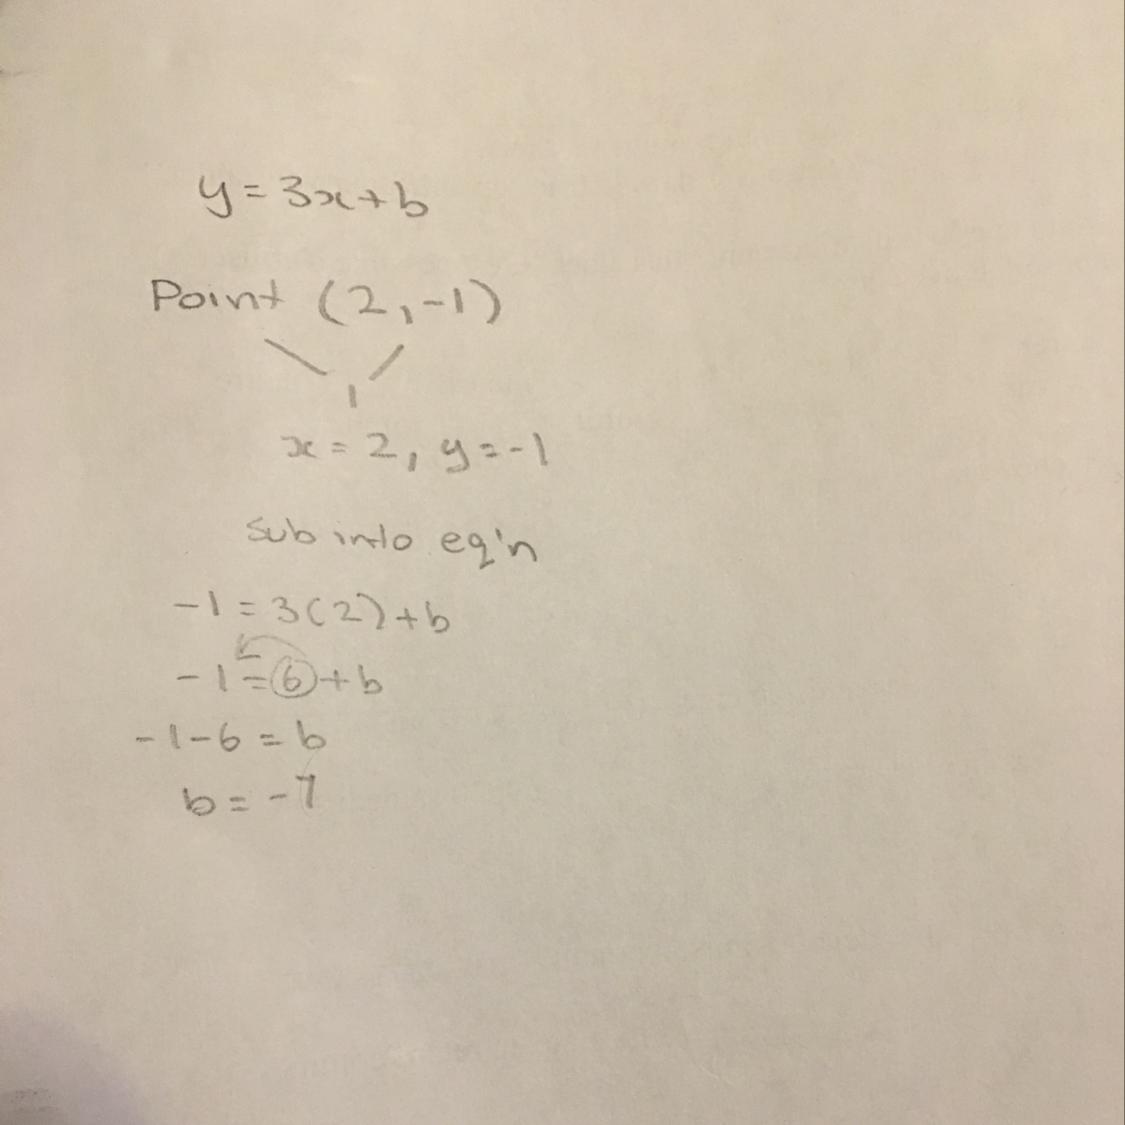 y = 3x + b
Point (2, -1)
x = 2, y = -1
Sub into eq'n
-1 = 3(2) + b
-1 = 6 + b
-1 - 6 = b
b = -7